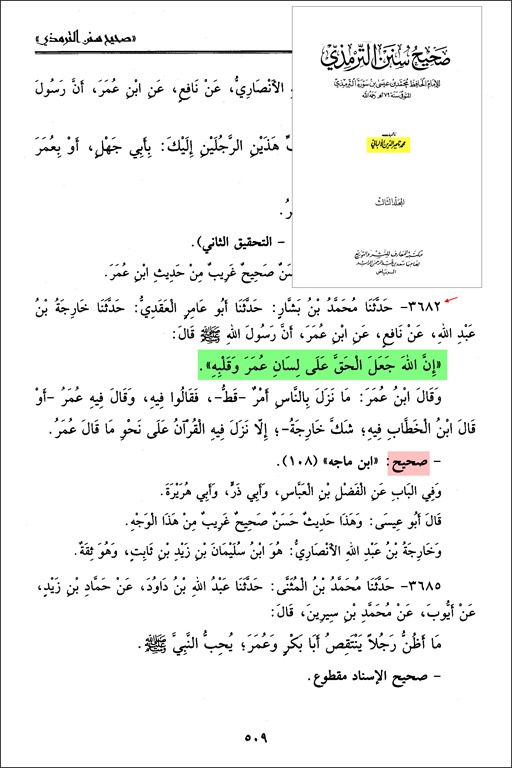 «صحيح سنن الترمذي»
الأَنْصَارِيُّ، عَنْ نَافِعٍ، عَنِ ابْنِ عُمَرَ، أَنَّ رَسُولَ
هَذَيْنِ الرَّجُلَيْنِ إِلَيْكَ: بِأَبِي جَهْلٍ، أَوْ بِعُمَرَ
– التحقيق الثاني).
صَحِيحٌ غَرِيبٌ مِنْ حَدِيثِ ابْنِ عُمَرَ.
صَحِيحُ سُنَنِ التِّرْمِذِيِّ
لِلإِمَامِ الحَافِظِ مُحَمَّدِ بْنِ عِيسَى بْنِ سَوْرَةَ التِّرْمِذِيِّ
تأليف
محمد ناصر الدين الألباني
المجلد الثالث
مكتبة المعارف للنشر والتوزيع
لصاحبها سعد بن عبد الرحمن الراشد
الرياض
٣٦٨٢– حَدَّثَنَا مُحَمَّدُ بْنُ بَشَّارٍ: حَدَّثَنَا أَبُو عَامِرٍ الْعَقَدِيُّ: حَدَّثَنَا خَارِجَةُ بْنُ
عَبْدِ اللهِ، عَنْ نَافِعٍ، عَنِ ابْنِ عُمَرَ، أَنَّ رَسُولَ اللهِ ﷺ قَالَ:
«إِنَّ اللهَ جَعَلَ الْحَقَّ عَلَى لِسَانِ عُمَرَ وَقَلْبِهِ».
وَقَالَ ابْنُ عُمَرَ: مَا نَزَلَ بِالنَّاسِ أَمْرٌ –قَطُّ–، فَقَالُوا فِيهِ، وَقَالَ فِيهِ عُمَرُ –أَوْ
قَالَ ابْنُ الْخَطَّابِ فِيهِ؛ شَكَّ خَارِجَةُ–؛ إِلَّا نَزَلَ فِيهِ الْقُرْآنُ عَلَى نَحْوِ مَا قَالَ عُمَرُ.
– صحيح: «ابن ماجه» (١٠٨).
وَفِي الْبَابِ عَنِ الْفَضْلِ بْنِ الْعَبَّاسِ، وَأَبِي ذَرٍّ، وَأَبِي هُرَيْرَةَ.
قَالَ أَبُو عِيسَى: وَهَذَا حَدِيثٌ حَسَنٌ صَحِيحٌ غَرِيبٌ مِنْ هَذَا الْوَجْهِ.
وَخَارِجَةُ بْنُ عَبْدِ اللهِ الأَنْصَارِيُّ: هُوَ ابْنُ سُلَيْمَانَ بْنِ زَيْدِ بْنِ ثَابِتٍ، وَهُوَ ثِقَةٌ.
٣٦٨٥– حَدَّثَنَا مُحَمَّدُ بْنُ الْمُثَنَّى: حَدَّثَنَا عَبْدُ اللهِ بْنُ دَاوُدَ، عَنْ حَمَّادِ بْنِ زَيْدٍ،
عَنْ أَيُّوبَ، عَنْ مُحَمَّدِ بْنِ سِيرِينَ، قَالَ:
مَا أَظُنُّ رَجُلاً يَنْتَقِصُ أَبَا بَكْرٍ وَعُمَرَ؛ يُحِبُّ النَّبِيَّ ﷺ.
– صحيح الإسناد مقطوع.
٥٠٩